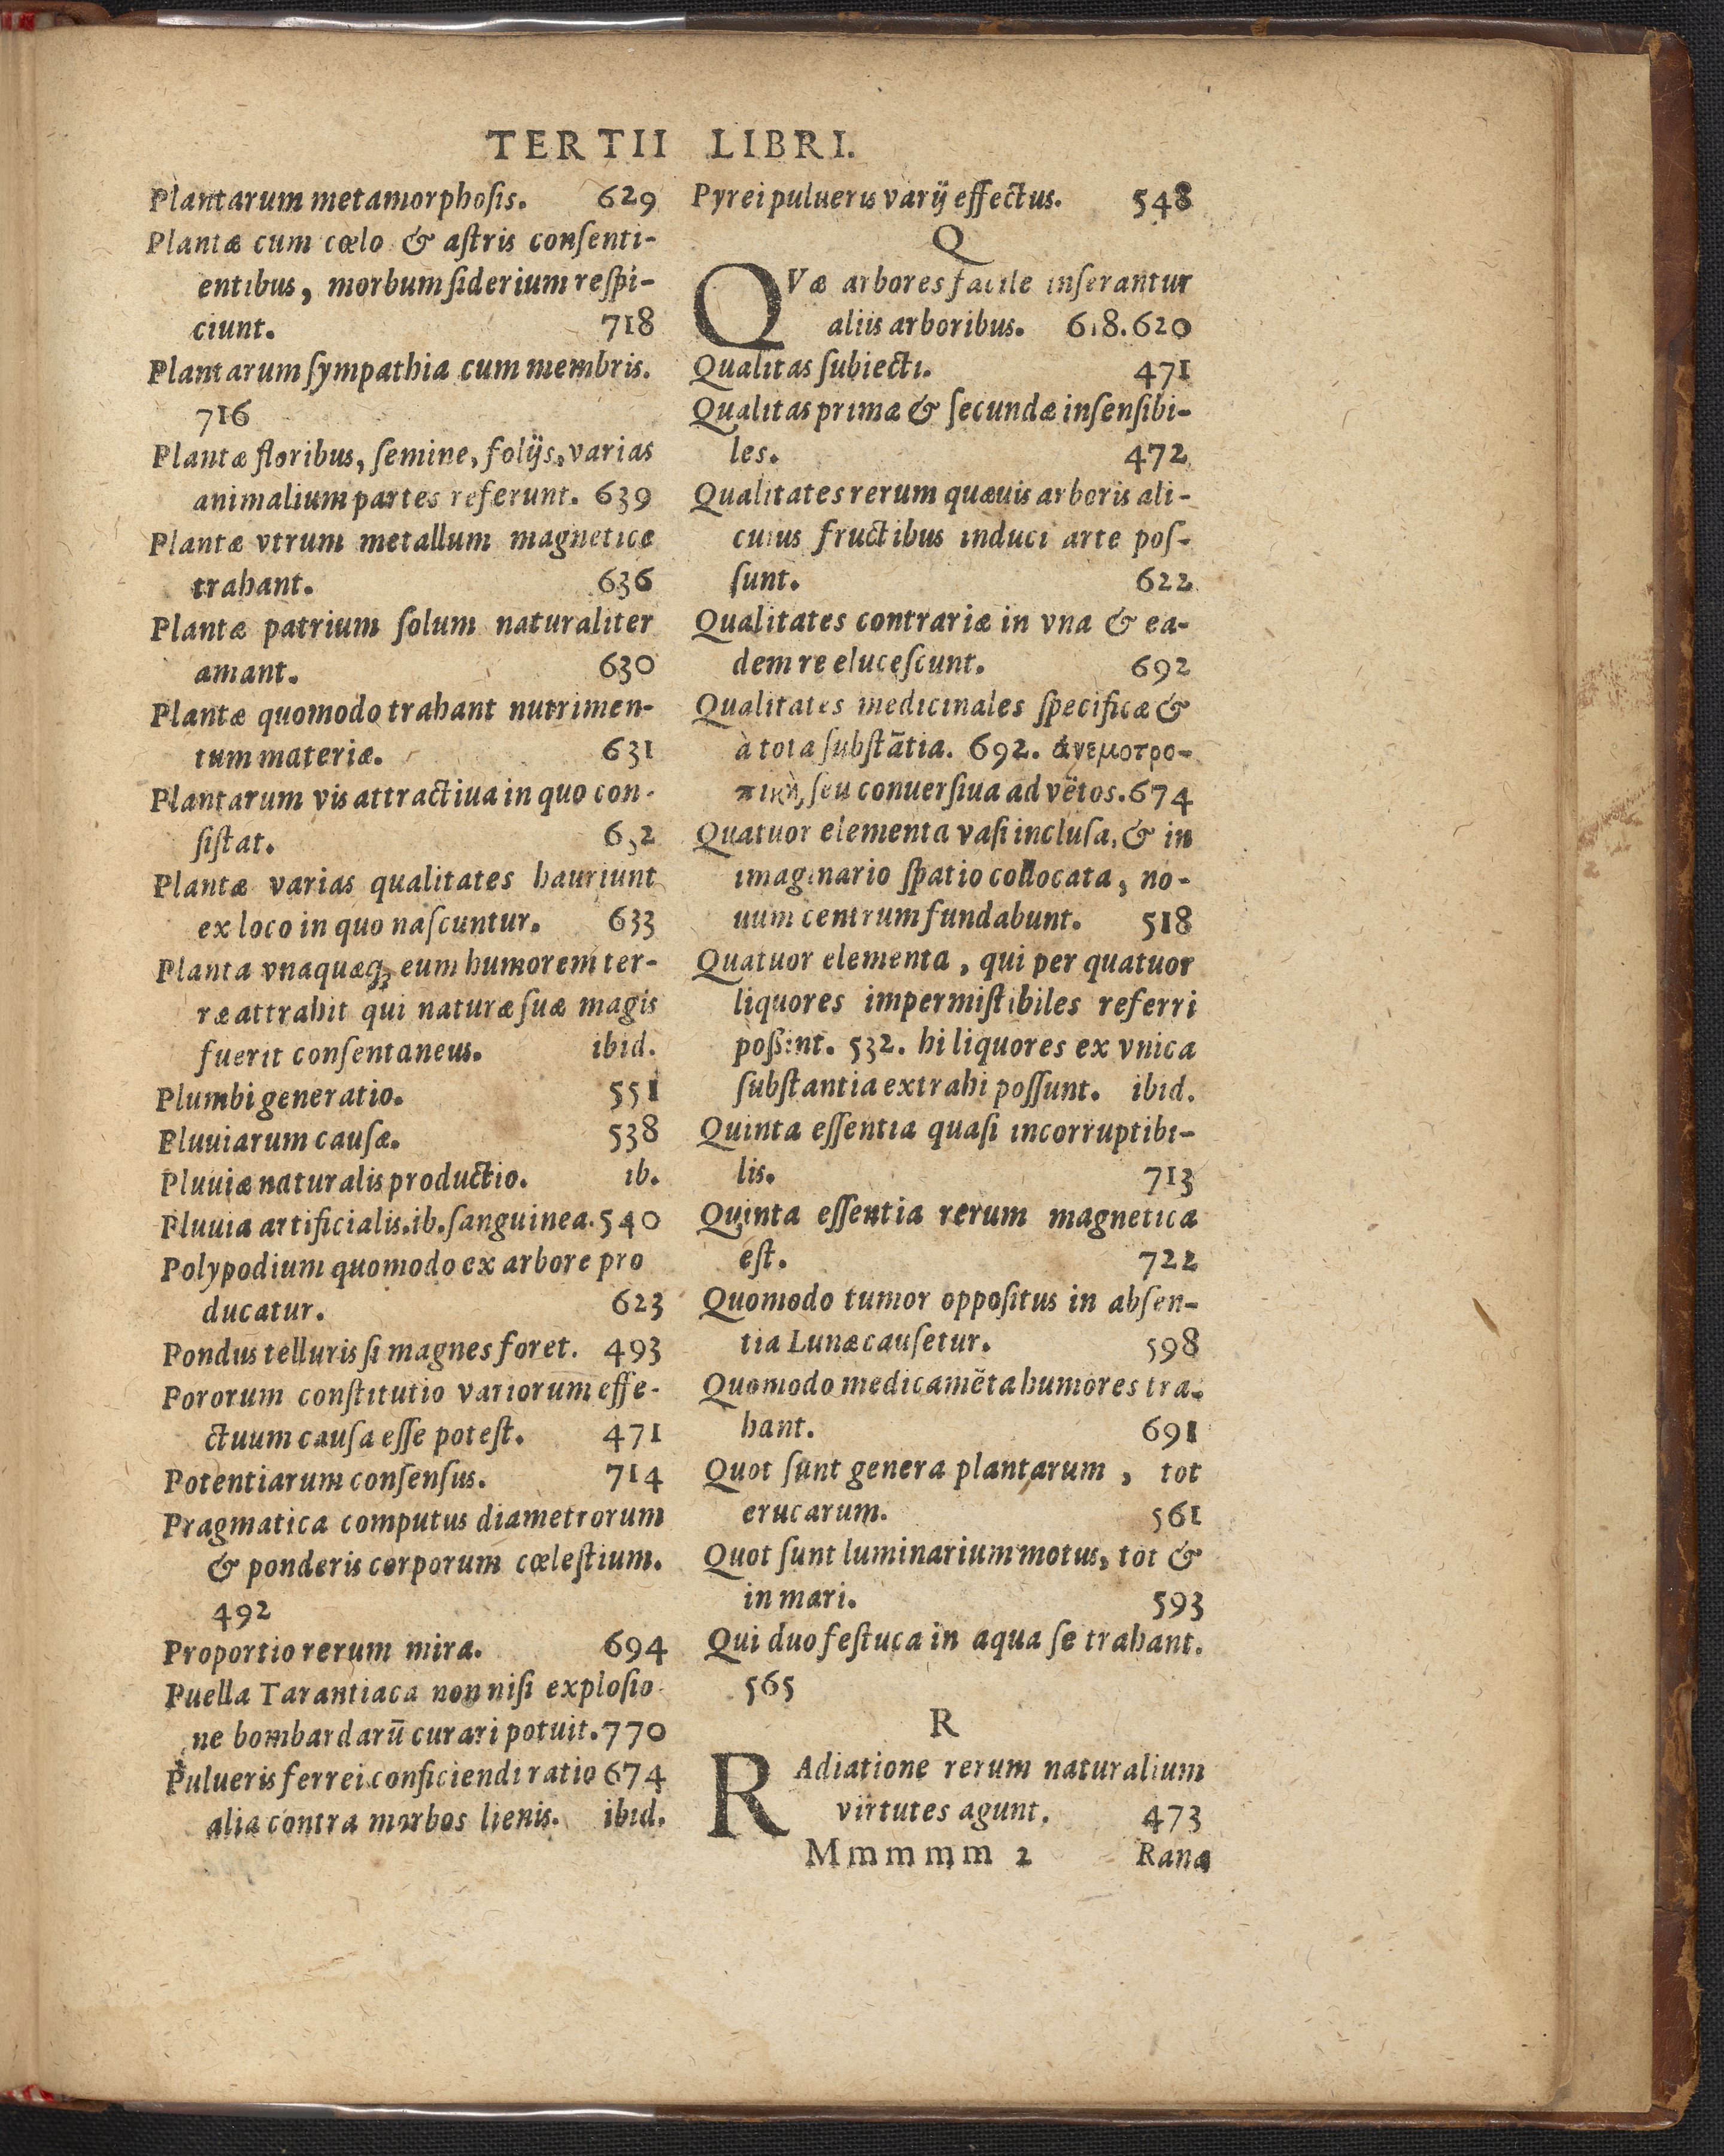 TERTII LIBRI.
Plantarum metamorphoſis. 629
Plantæ cum cœlo & aſtris conſenti-
entibus, morbum ſiderium reſpi-
ciunt. 718
Plantarum ſympathia cum membris.
716
Plantæ floribus, ſemine, folijs, varias
animalium partes referunt. 639
Plantæ vtrum metallum magnetice
trahant. 636
Plantæ patrium ſolum naturaliter
amant. 630
Plantæ quomodo trahant nutrimen-
tum materiæ. 631
Plantarum vis attractiua in quo con-
ſiſtat.
Plantæ varias qualitates hauriunt
ex loco in quo naſcuntur. 633
Planta vnaquæq; eum humorem ter-
ræ attrahit qui naturæ ſuæ magis
fuerit conſentaneus. ibid.
Plumbi generatio. 551
Pluuiarum cauſæ. 538
Pluuiæ naturalis productio. ib.
Pluuia artificialis. ib. ſanguinea. 540
Polypodium quomodo ex arbore pro
ducatur. 623
Pondus telluris ſi magnes foret. 493
Pororum conſtitutio variorum effe-
ctuum cauſa eſſe poteſt. 471
Potentiarum conſenſus. 714
Pragmatica computus diametrorum
& ponderis corporum cœleſtium.
492
Proportio rerum mira. 694
Puella Tarantiaca non niſi exploſio-
ne bombardarū curari potuit. 770
Pulueris ferrei conficiendi ratio 674
alia contra morbos lienis. ibid.
Pyrei pulueris varij effectus. 548
Q
QVæ arbores facile inſerantur
aliis arboribus. 618. 620
Qualitas ſubiecti. 471
Qualitas primæ & ſecundæ inſenſibi-
les. 472
Qualitates rerum quæuis arboris ali-
cuius fructibus induci arte poſ-
ſunt. 622
Qualitates contrariæ in vna & ea-
dem re eluceſcunt. 692
Qualitates medicinales ſpecificæ &
à tota ſubſtātia. 692. ἀνεμοτρο-
πικὴ, ſeu conuerſiua ad vētos. 674
Quatuor elementa vaſi incluſa, & in
imaginario ſpatio collocata, no-
uum centrum fundabunt. 518
Quatuor elementa, qui per quatuor
liquores impermiſtibiles referri
poßint. 532. hi liquores ex vnica
ſubſtantia extrahi poſſunt. ibid.
Quinta eſſentia quaſi incorruptibi-
lis. 713
Quinta eſſentia rerum magnetica
eſt. 722
Quomodo tumor oppoſitus in abſen-
tia Lunæ cauſetur. 598
Quomodo medicamēta humores tra-
hant. 691
Quot ſunt genera plantarum, tot
erucarum. 561
Quot ſunt luminarium motus, tot &
in mari. 593
Qui duo feſtuca in aqua ſe trahant.
565
R
RAdiatione rerum naturalium
virtutes agunt. 473
Mmmmm 2 Ranæ